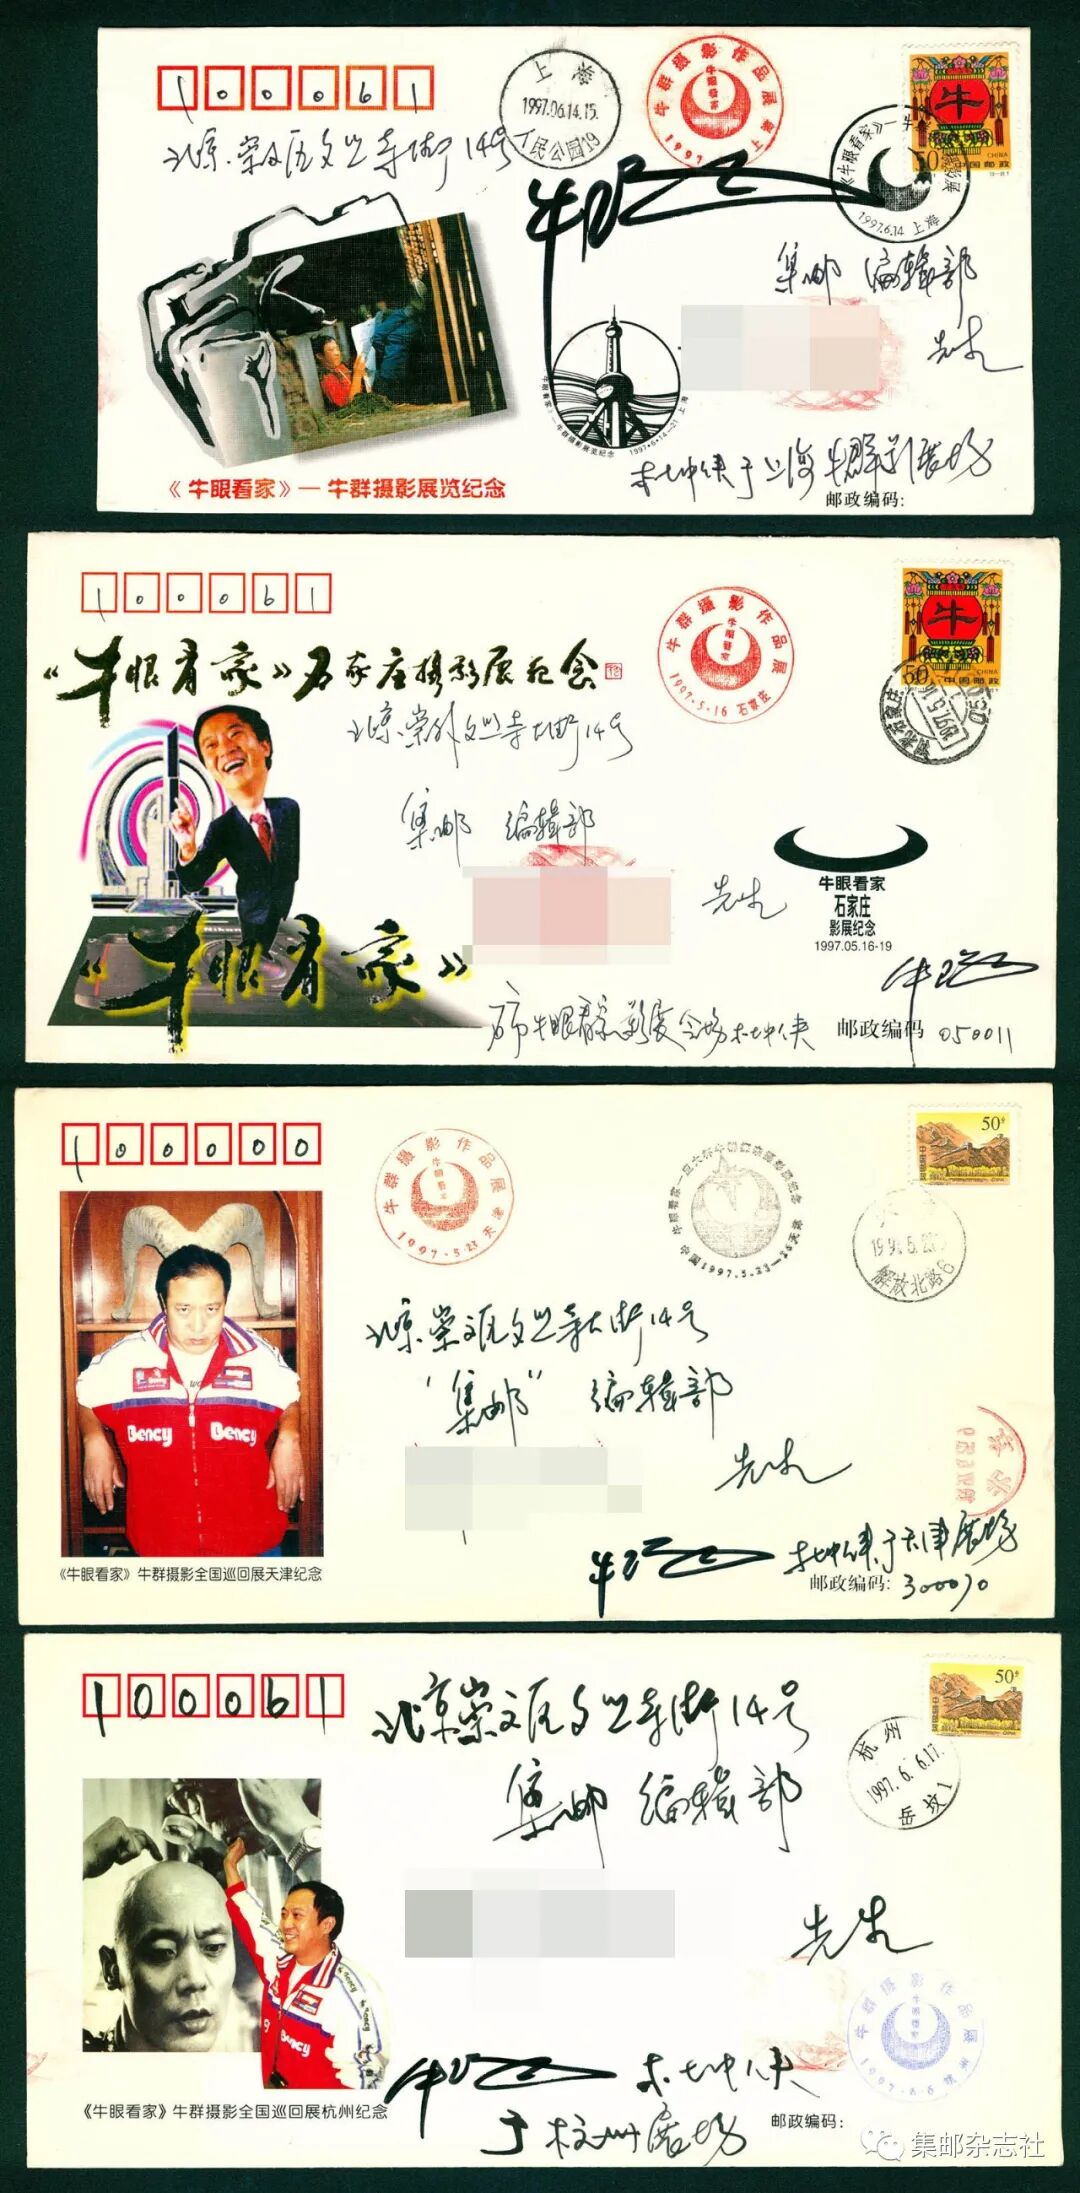 100061
上海
1997.06.14.15.
人民公园19
牛群摄影作品展
牛眼看家
1997
上海
牛
50
CHINA
中国邮政
《牛眼看家》一牛群摄影展
1997.6.14 上海
北京.崇文区文兴寺街14号
集邮 编辑部
先生
《牛眼看家》—牛群摄影展览纪念
1997·6·14—21 上海
《牛眼看家》—牛群摄影展览纪念
于上海牛群影展场
邮政编码：
100061
《牛眼看家》石家庄摄影展云会
牛群摄影作品展
牛眼看家
1997·5·16 石家庄
牛
50
CHINA
中国邮政
北京.崇外文兴寺大街14号
集邮 编辑部
先生
Nikon
《牛眼看家》
牛眼看家
石家庄
影展纪念
1997.05.16-19
邮政编码 050011
100000
牛群摄影作品展
牛眼看家
1997·5·23 天津
中国1997.5.23—25天津
50分
解放北路6
北京.崇文区文兴寺大街14号
“集邮” 编辑部
先生
Bency Bency
于天津展场
《牛眼看家》牛群摄影全国巡回展天津纪念
邮政编码: 300070
100061
北京崇文区文兴寺街14号
50分
杭州
1997.6.6.17.
岳坟1
集邮 编辑部
先生
牛群摄影作品展
牛眼看家
1997·6·6 杭州
Bency
Bency
于杭州展场
《牛眼看家》牛群摄影全国巡回展杭州纪念
邮政编码：
集邮杂志社